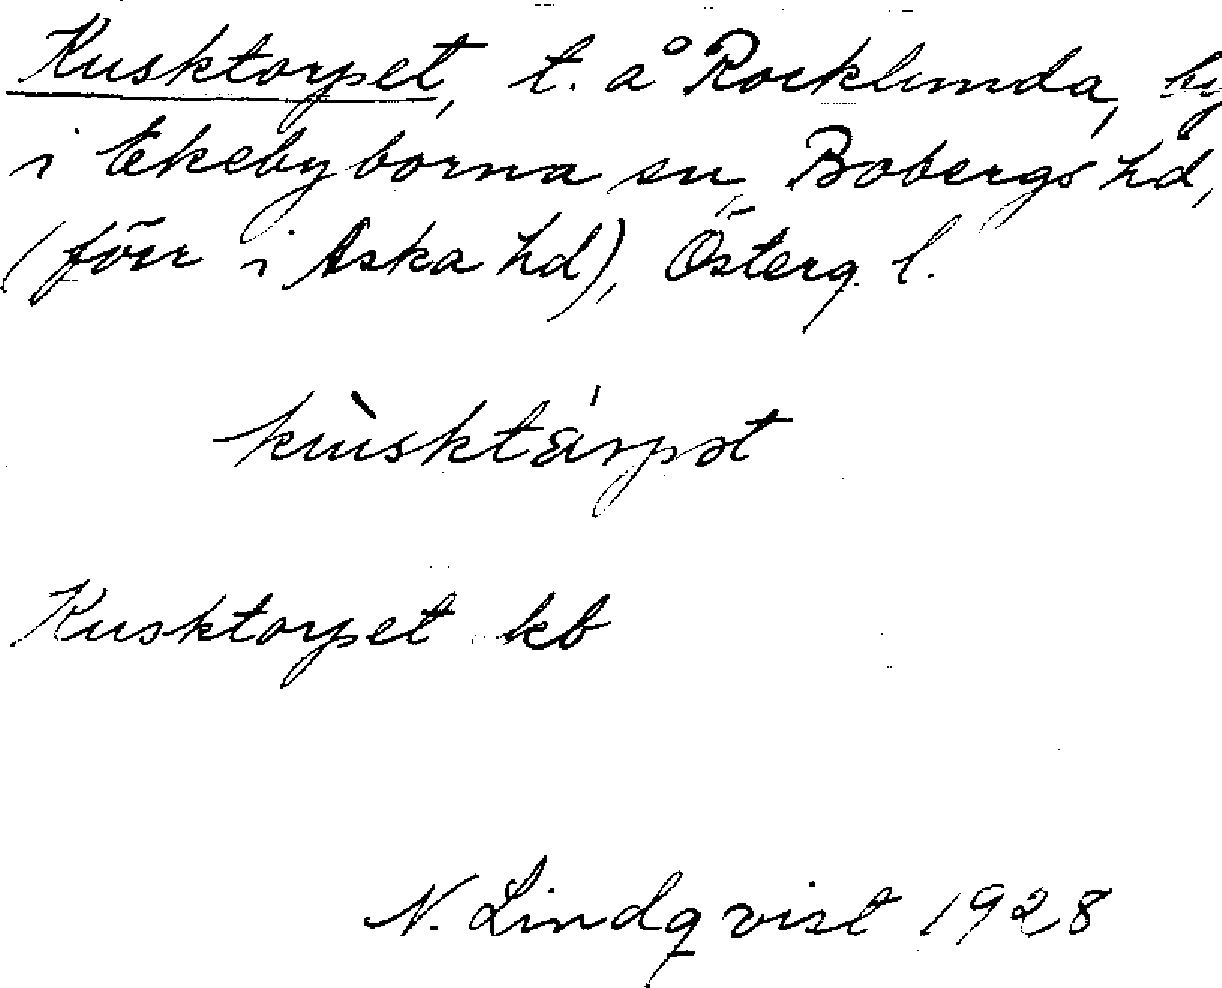 Kusktorpet, t. å Rocklunda, by
i Ekebyborna sn, Bobergs hd,
(förr i Aska hd), Österg. l.
kùsktárpət
Kusktorpet kb
N. Lindqvist 1928